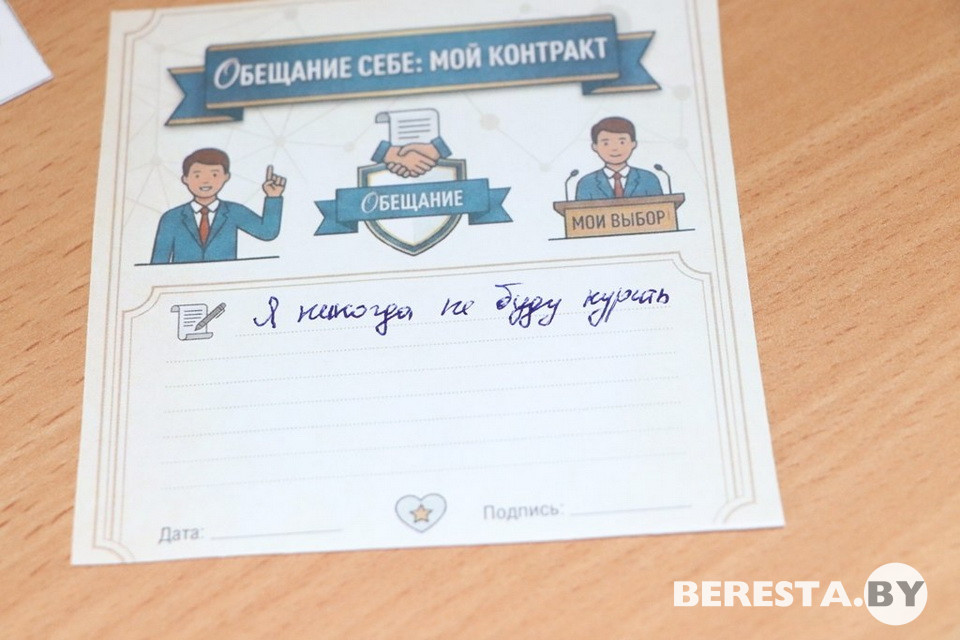 ОБЕЩАНИЕ СЕБЕ: МОЙ КОНТРАКТ
ОБЕЩАНИЕ
МОЙ ВЫБОР
Я никогда не буду курить
Дата:
Подпись:
BERESTA.BY